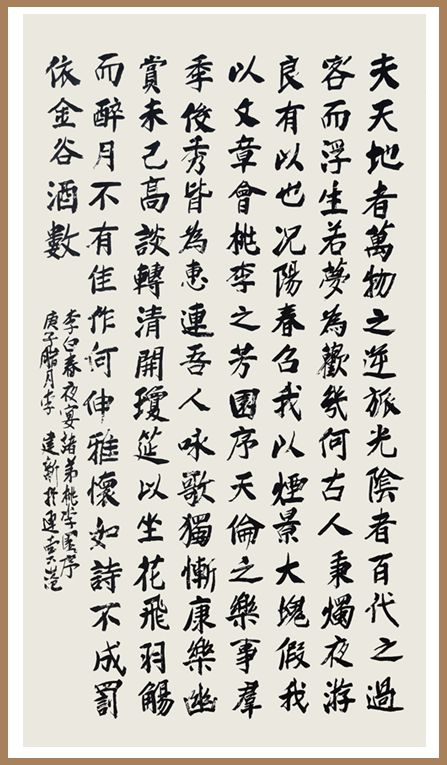 夫天地者萬物之逆旅光陰者百代之過
客而浮生若夢為歡幾何古人秉燭夜游
良有以也况陽春召我以煙景大塊假我
以文章會桃李之芳園序天倫之樂事羣
季俊秀皆為惠連吾人咏歌獨慚康樂幽
賞未已高談轉清開瓊筵以坐花飛羽觴
而醉月不有佳作何伸雅懷如詩不成罰
依金谷酒數
李白春夜宴諸弟桃李園序
庚子腊月李建新於連